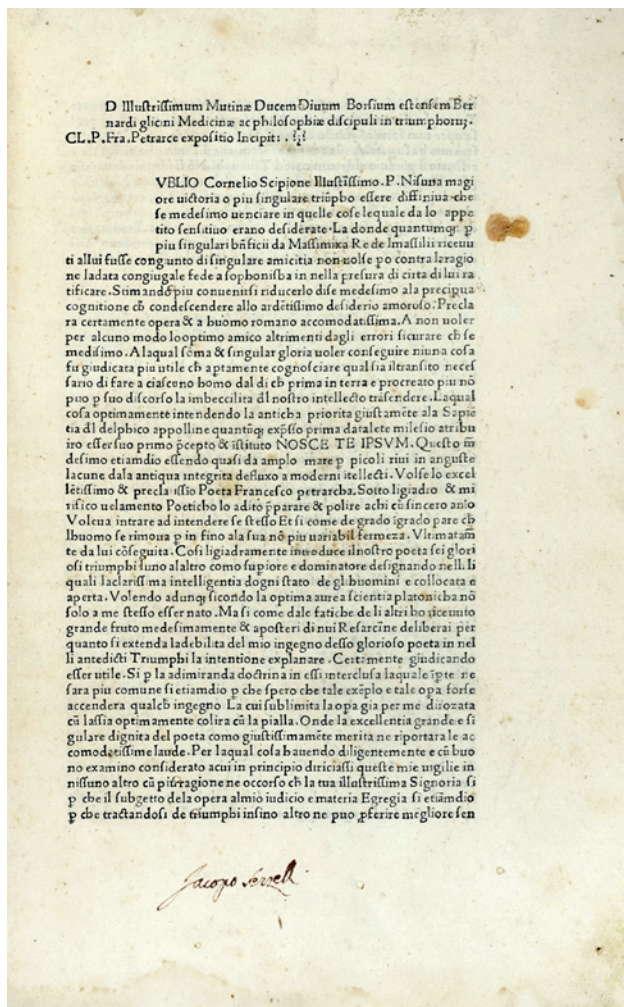 D Illustrissimum Mutinæ Ducem Diuum Borsium estensem Ber
nardi glicini Medicinæ ac philosophiæ discipuli in triumphoruꝫ
CL.P.Fra.Petrarce expositio Incipit:.
VBLIO Cornelio Scipione Illustissimo.P.Nisuna magi
ore uictoria o piu singulare triūpho essere diffiniua che
se medesimo uenciare in quelle cose lequale da lo appe
tito sensitiuo erano desiderate.La donde quantumqꝫ ꝑ
piu singulari bñficii da Massimixa Re de Imassilii riceuu
ti allui fusse congiunto di singulare amicitia non uolse po contra laragio
ne ladata congiugale fede a sophonisba in nella presura di cirta di lui ra
tificare.Stimando piu conuenirsi riducerlo dise medesimo ala precipua
cognitione cħ condescendere allo ardētissimo desiderio amoroso.Precla
ra certamente opera & a huomo romano accomodatissima.A non uoler
per alcuno modo looptimo amico altrimenti dagli errori sicurare cħ se
medisimo.Alaqual sōma & singular gloria uoler conseguire niuna cosa
fu giudicata piu utile cħ aptamente cognosciare qual sia iltransito neces
sario di fare a ciascuno homo dal di cħ prima in terra e procreato piu nō
puo ꝑ suo discorso la imbeccilita dl nostro intellecto trasendere.Laqual
cosa optimamente intendendo la anticha priorita giustamēte ala Sapiē
tia dl delphico appolline quantūqꝫ exꝑsso prima datalete milesio atribu
iro esser suo primo ꝑcepto & īstituto NOSCE TE IPSVM.Questo m̄
desimo etiamdio essendo quasi da amplo mare ꝑ picoli riui in anguste
lacune dala antiqua integrita defluxo a moderni itellecti.Volse lo excel
lētissimo & precla issīo Poeta Francesco petrarcha.Sotto ligiadio & mi
rifico uelamento Poeticho lo aditο ꝑparare & polire achi cū sincero anīo
Voleua intrare ad intendere se stesso Et si come de grado īgrado pare cħ
lhuomo se rimoua ꝑ in fino ala sua nō piu uariabil fermeza.Vltimatam̄
te da lui cōseguita.Cosi ligiadramente introduce ilnostro poeta sei glori
osi triumphi luno alaltro como suꝑiore e dominatore designando nelli.Ii
quali laclarissima intelligentia dogni stato de gli huomini e collocata e
aperta.Volendo adunqꝫ sicondo la optima aurea scientia platonicha nō
solo a me stesso esser nato.Ma si come dale fatiche de li altri ho riceuuto
grande fruto medesimamente & aposteri di nui Resarcīne deliberai per
quanto si extenda ladebilita del mio ingegno desso glorioso poeta in nel
li antedicti Triumphi la intentione explanare.Certamente giudicando
esser utile.Si ꝑ la admiranda doctrina in essi interclusa laquale īpte ne
sara piu comune si etiamdio ꝑ che spero che tale exēplo e tale opa forse
accendera qualcħ ingegno La cui sublimita la opa gia per me dirozata
cū lassia optimamente colira cū la pialla.Onde la excellentia grande e si
gulare dignita del poeta como giustissimamēte merita ne riportara le ac
comodatissime laude.Per laqual cosa hauendo diligentemente e cū buo
no examino considerato acui in principio diriciassi queste mie uigilie in
nissuno altro cū piu ragione ne occorso cħ la tua illustrissima Signoria si
ꝑ che il subgetto dela opera almio iudicio e materia Egregia si etiāmdio
ꝑ che tractandosi de triumphi insino altro ne puo ꝓferire megliore sen
Jacopo